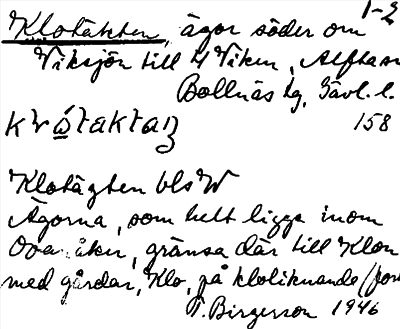 1-2
Klotäkten, ägor söder om
Viksjön till 4 Viken, Alfta sn
Bollnäs tg, Gävl. l.
158
Klotägten bls W
Ägorna, som helt ligga inom
Ova åker, gränsa där till Klon
med gårdar, Klo, på kloliknande
T. Birgerson 1946